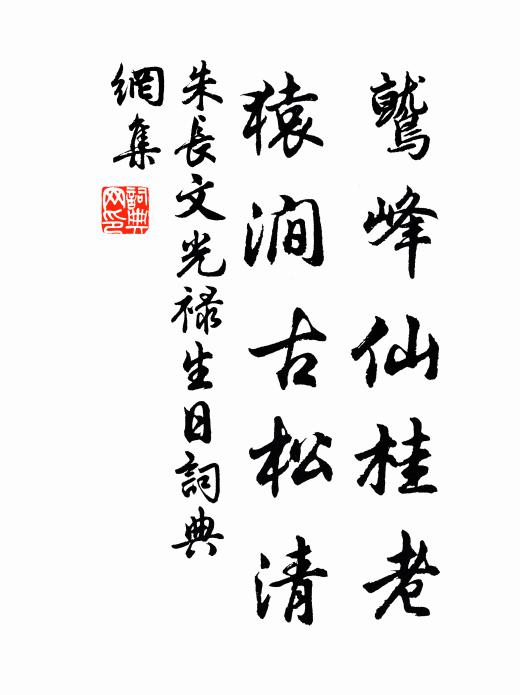 鷲峰仙桂老
猿澗古松清
朱長文光禄生日詞典
網集
詞典网印